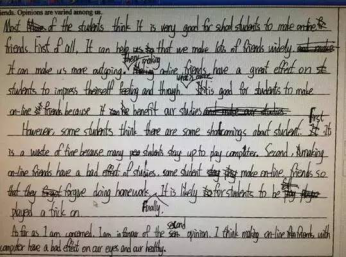 iends. Opinions are varied among us.
Most of the students think it is very good for school students to make online
friends. First of all, It can help us that we make lots of friends widely.
It can make us more outgoing. online friends have a great effect on
students to impress their feeling and though is good for students to make
on-line friends because it can benefit our studies
First
However, some students think there are some shortcomings about student. It
is a waste of time because many stay up to play computer. Second, making
on-line friends have a bad effect of studies, some student make on-line friends so
that they forgue doing homework. It is likely for students to be
played a trick on
Finally.
second
As far as I am concerned, I am in favour of the opinion. I think making on-line friends with
computer have a bad effect on our eyes and our healthy.